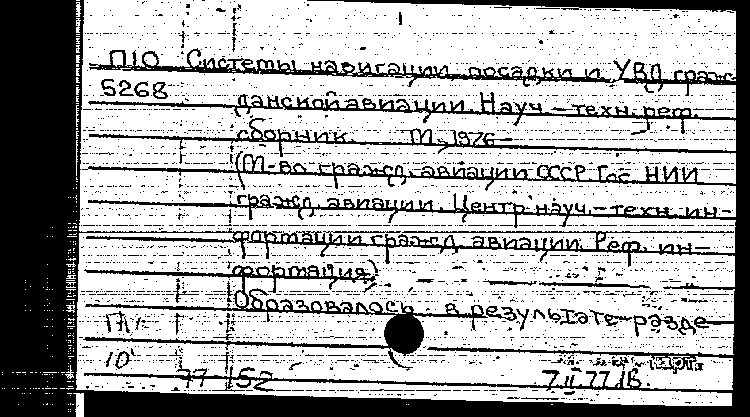 П10 Системы навигации, посадки и УВД граж-
5268 данской авиации. Науч.-техн. реф.
сборник. М., 1976-
(М-во гражд. авиации СССР. Гос. НИИ
гражд. авиации. Центр науч.-техн. ин-
формации гражд. авиации. Реф. ин-
формация)
Образовалось в результате разде-
10
77 152
7 II 77 1В.